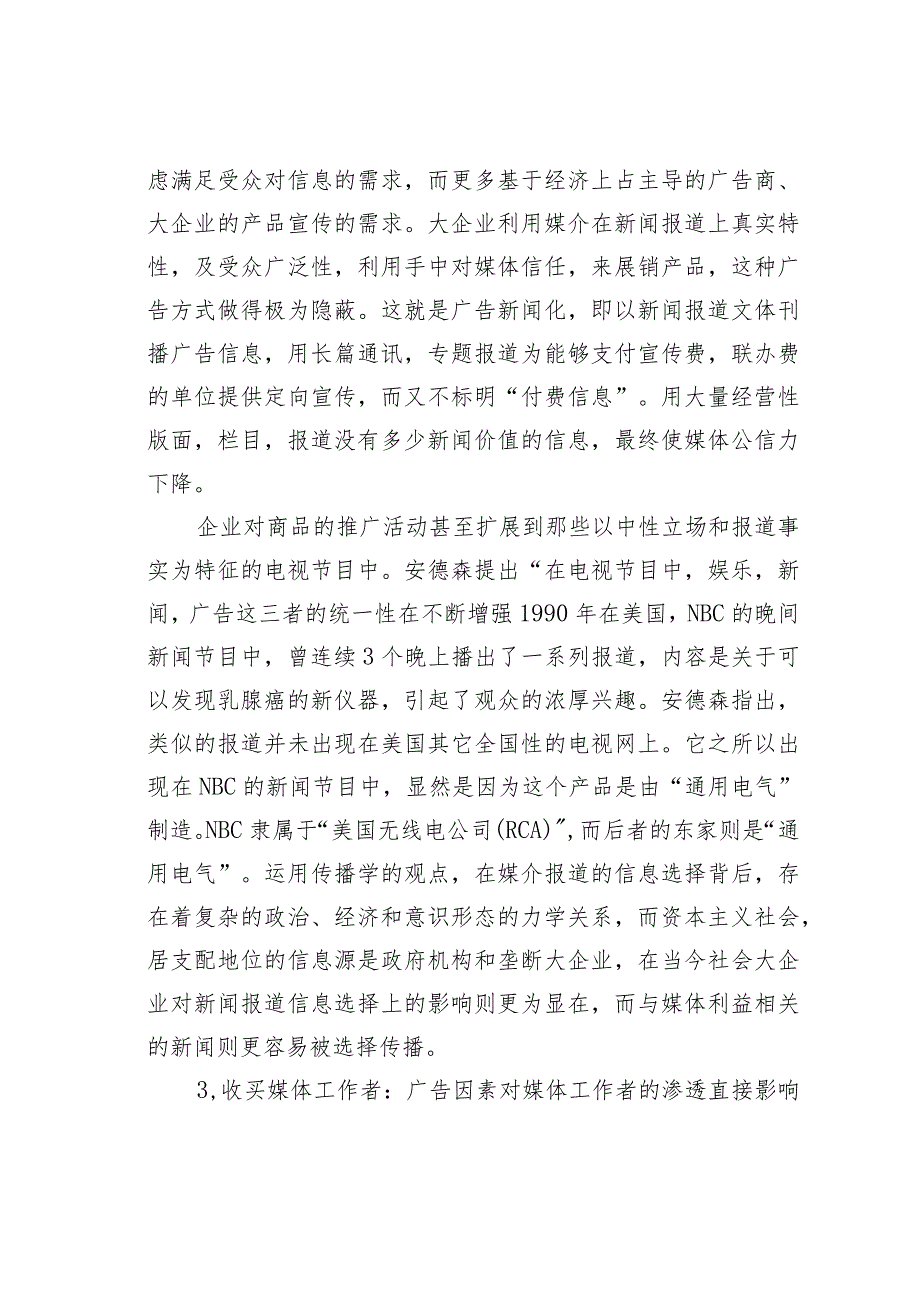 虑满足受众对信息的需求，而更多基于经济上占主导的广告商、
大企业的产品宣传的需求。大企业利用媒介在新闻报道上真实特
性，及受众广泛性，利用手中对媒体信任，来展销产品，这种广
告方式做得极为隐蔽。这就是广告新闻化，即以新闻报道文体刊
播广告信息，用长篇通讯，专题报道为能够支付宣传费，联办费
的单位提供定向宣传，而又不标明“付费信息”。用大量经营性
版面，栏目，报道没有多少新闻价值的信息，最终使媒体公信力
下降。
企业对商品的推广活动甚至扩展到那些以中性立场和报道事
实为特征的电视节目中。安德森提出“在电视节目中，娱乐，新
闻，广告这三者的统一性在不断增强 1990 年在美国，NBC 的晚间
新闻节目中，曾连续 3 个晚上播出了一系列报道，内容是关于可
以发现乳腺癌的新仪器，引起了观众的浓厚兴趣。安德森指出，
类似的报道并未出现在美国其它全国性的电视网上。它之所以出
现在 NBC 的新闻节目中，显然是因为这个产品是由“通用电气”
制造。NBC 隶属于“美国无线电公司(RCA)",而后者的东家则是“通
用电气”。运用传播学的观点，在媒介报道的信息选择背后，存
在着复杂的政治、经济和意识形态的力学关系，而资本主义社会，
居支配地位的信息源是政府机构和垄断大企业，在当今社会大企
业对新闻报道信息选择上的影响则更为显在，而与媒体利益相关
的新闻则更容易被选择传播。
3,收买媒体工作者：广告因素对媒体工作者的渗透直接影响